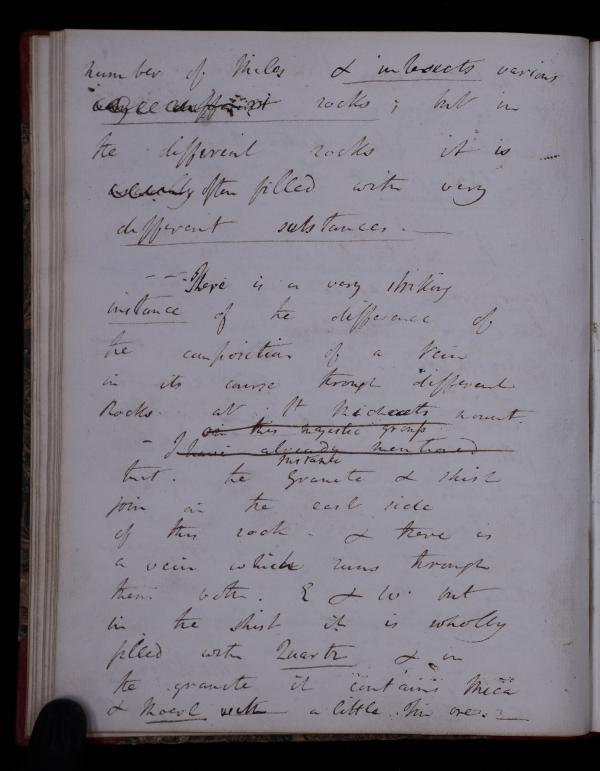 number of Miles & intersects various
rocks; but in
the different rocks it is
often filled with very
different substances. —
— — There is a very striking
instance of the difference of
the composition of a Vein
in its course through different
Rocks. at St Michaels mount.
in this majestic group
— I have already mentioned
instance
but. the Granite & shist
join on the east side
of this rock - & there is
a vein which runs through
them both. E & W. but
in the shist it is wholly
filled with Quartz & in
the granite it contains Mica
& with a little Tin ore. —